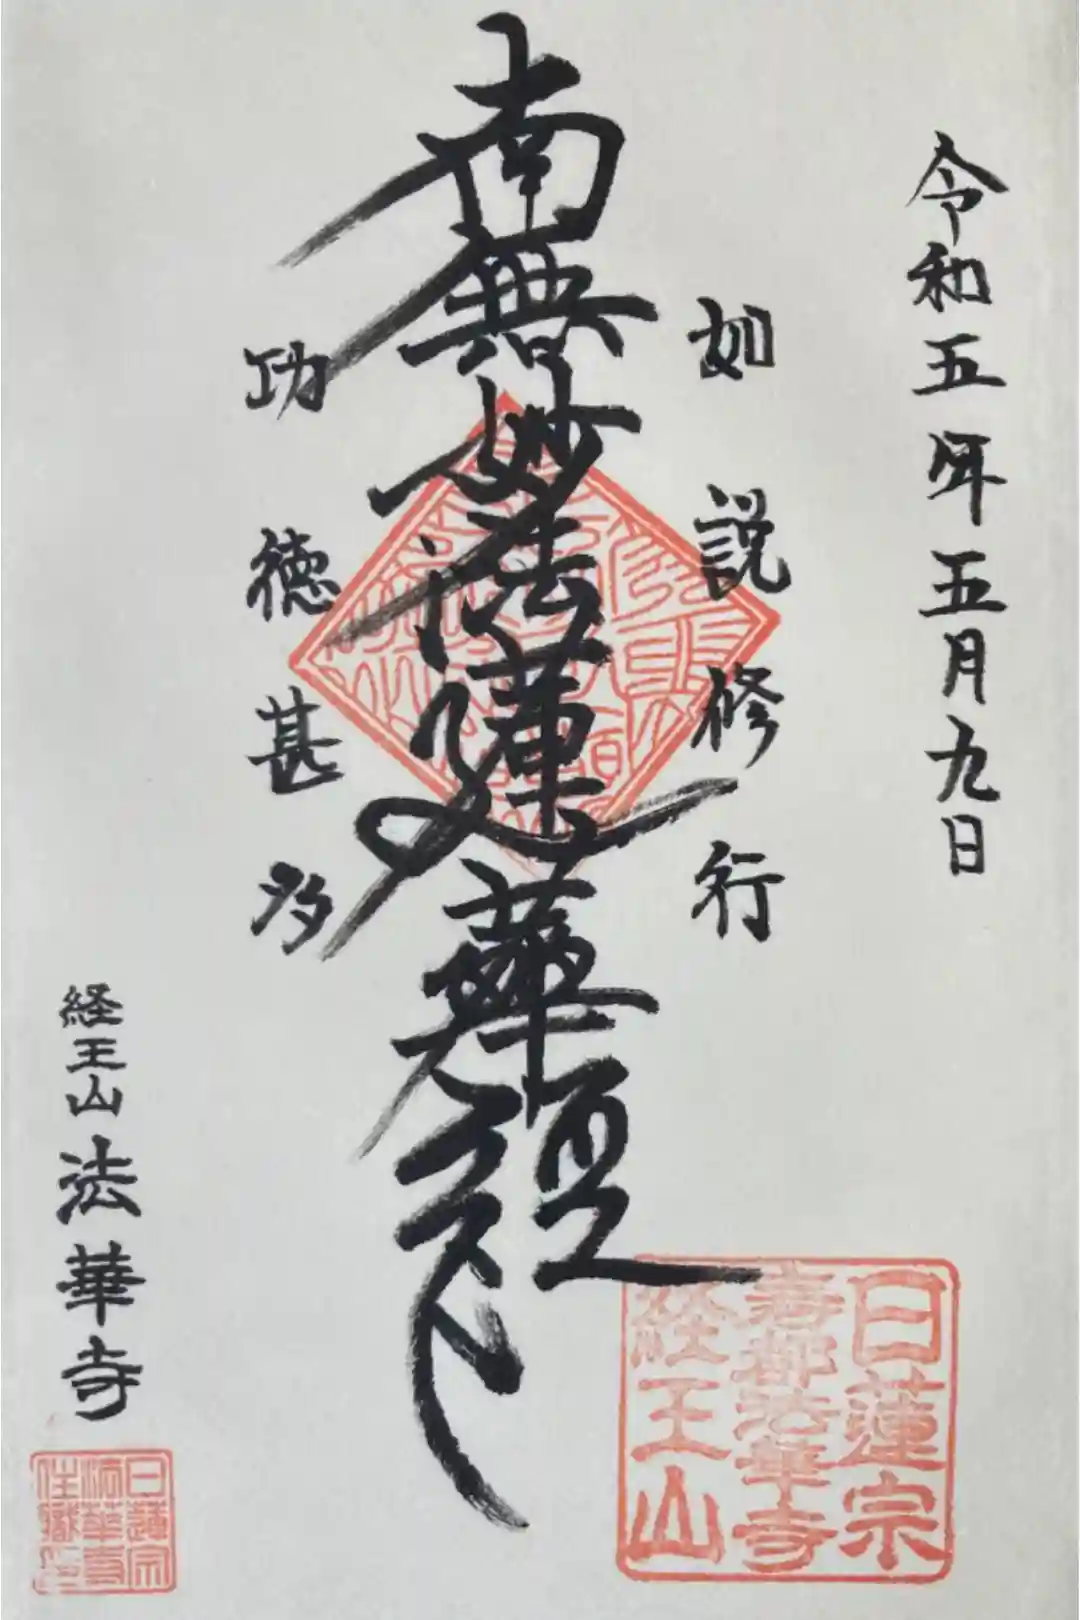 令和五年五月九日
如説修行
南無妙法蓮華経
功徳甚多
経王山法華寺
日蓮宗
壽都法華寺
経王山
日蓮宗
法華寺
住職印